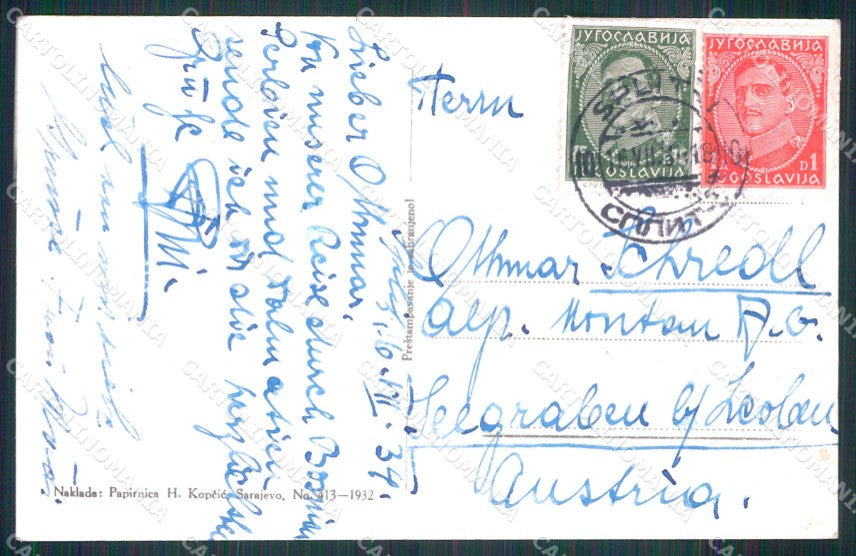 Split, 6. VII. 34.
Lieber Othmar,
Von unserer Reise durch Bosnien
Serbien und Dalmatien
sende ich dir die herzlichsten
Grüße
Auch von mir viele
Preštampavanje je zabranjeno!
Naklada: Papirnica H. Kopčić, Sarajevo, No. 413—1932
ЈУГОСЛАВИЈА
JUGOSLAVIJA
ЈУГОСЛАВИЈА
D1
JUGOSLAVIJA
SPLIT
СПЛИТ
Herrn
Othmar Schredl
Alp. Montan A. G.
Seegraben b/ Leoben
Austria.
CARTOLINOMANIA